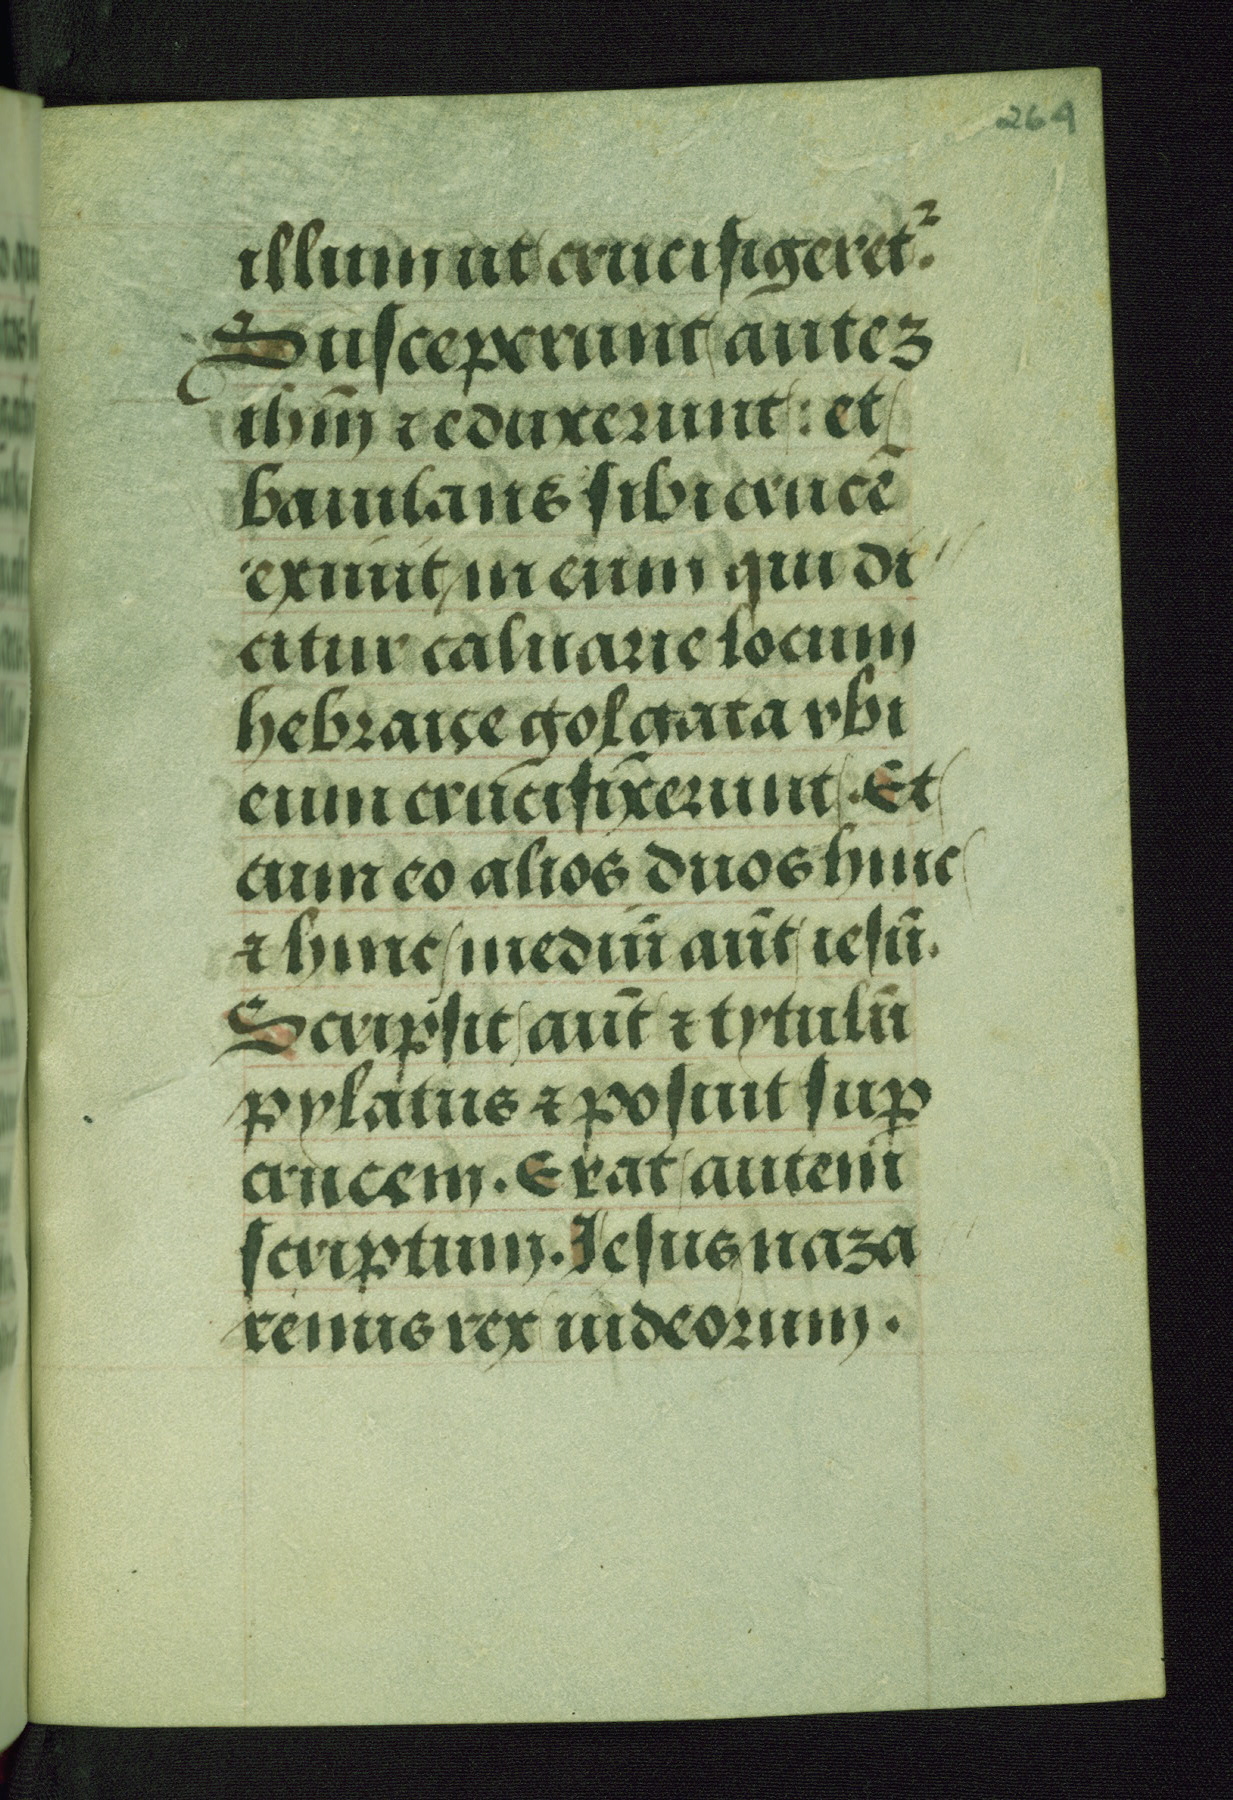 264
illum ut crucifigeret᷑.
Susceperunt autez
ihm̄ ⁊ eduxerunt: et
baiulans sibi crucē
exiuit in eum qui di
citur caluarie locum
hebraice golgata vbi
eum crucifixerunt. Et
cum eo alios duos hinc
⁊ hinc mediū aūt iesū.
Scripsit aūt ⁊ tytulū
pylatus ⁊ posuit sup
crucem. Erat autem
scriptum. Iesus naza
renus rex iudeorum.